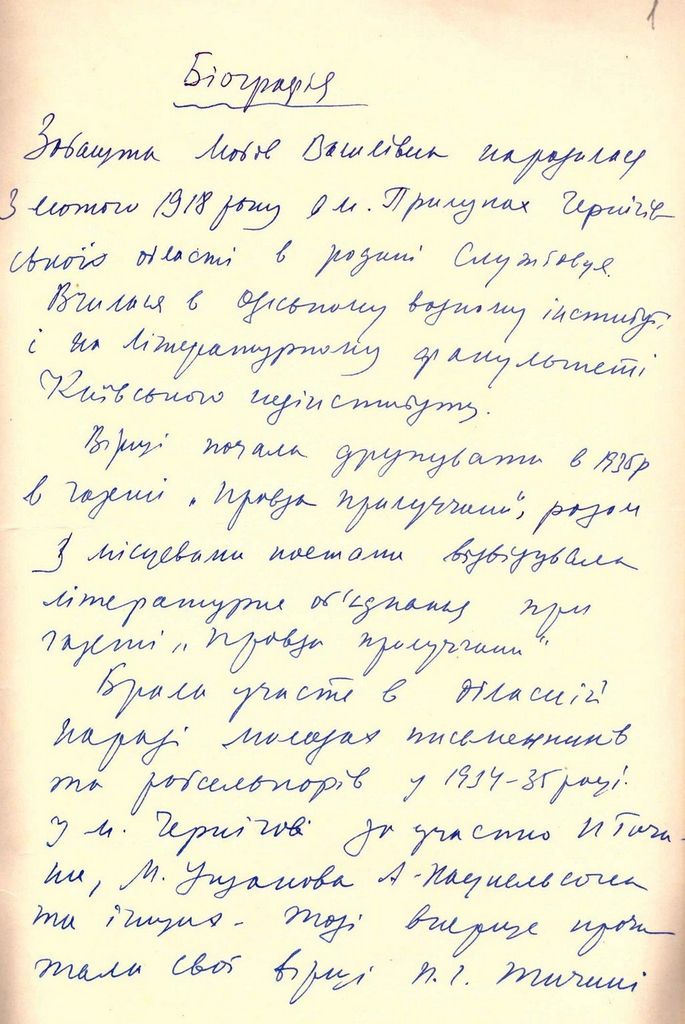 1
Біографія
Забашта Любов Василівна народилася
3 лютого 1918 року в м. Прилуках Чернігів
ської області в родині службовця.
Вчилася в Одеському водному інституті
і на літературному факультеті
Київського педінституту.
Вірші почала друкувати в 1935р
в газеті „Правда Прилуччини", разом
з місцевими поетами відвідувала
літературне об'єднання при
газеті „Правда Прилуччини"
Брала участь в обласній
нараді молодих письменників
та робселькорів у 1934-35 році.
у м. Чернігові за участю П Тичи-
ни, М. Ушакова А-Кацнельсона
та інших - Тоді вперше прочи
тала свої вірші П. Г. Тичині